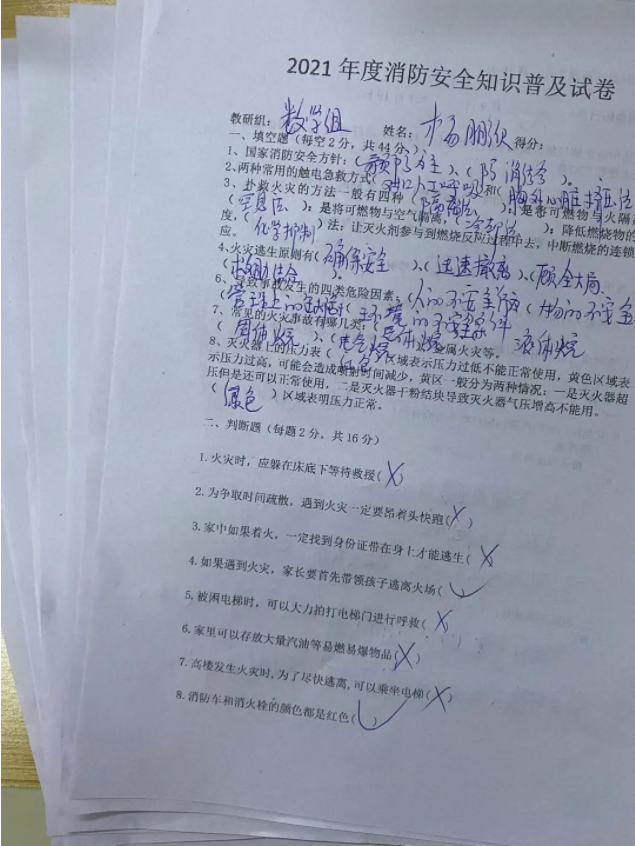 2021 年度消防安全知识普及试卷
教研组：数学组 姓名：杨鹏 得分：
一、填空题（每空2分，共44分）
1、国家消防安全方针：（预防为主）、（防消结合）。
2、两种常用的触电急救方式（对口人工呼吸）和（胸外心脏挤压法
3、扑救火灾的方法一般有四种（隔离法）：是将可燃物与火隔
（窒息法）：是将可燃物与空气隔离，（冷却法）：降低燃烧物的
度，（化学抑制）法：让灭火剂参与到燃烧反应过程中去，中断燃烧的连锁
应。
4、火灾逃生原则有（确保安全）、（迅速撤离）、（顾全大局
（救助结合）。
6、导致事故发生的四类危险因素：（人的不安全行为（物的不安全
（管理上的）、（环境的不安全条件
7、常见的火灾事故有哪几类：
（固体火烧）、（电气火烧 气体火烧 金属火灾等。 液体火烧
8、灭火器上的压力表（红色）区域表示压力过低不能正常使用，黄色区域表
示压力过高，可能会造成喷射时间减少，黄区一般分为两种情况：一是灭火器超
压但是还可以正常使用，二是灭火器干粉结块导致灭火器气压增高不能用。
（绿色）区域表明压力正常。
二、判断题（每题2分，共16分）
1.火灾时，应躲在床底下等待救援(X)
2.为争取时间疏散，遇到火灾一定要昂着头快跑(X)
3.家中如果着火，一定找到身份证带在身上才能逃生(X)
4.如果遇到火灾，家长要首先带领孩子逃离火场(✓)
5.被困电梯时，可以大力拍打电梯门进行呼救(X)
6.家里可以存放大量汽油等易燃易爆物品(X)
7.高楼发生火灾时,为了尽快逃离,可以乘坐电梯(X)
8.消防车和消火栓的颜色都是红色(✓)